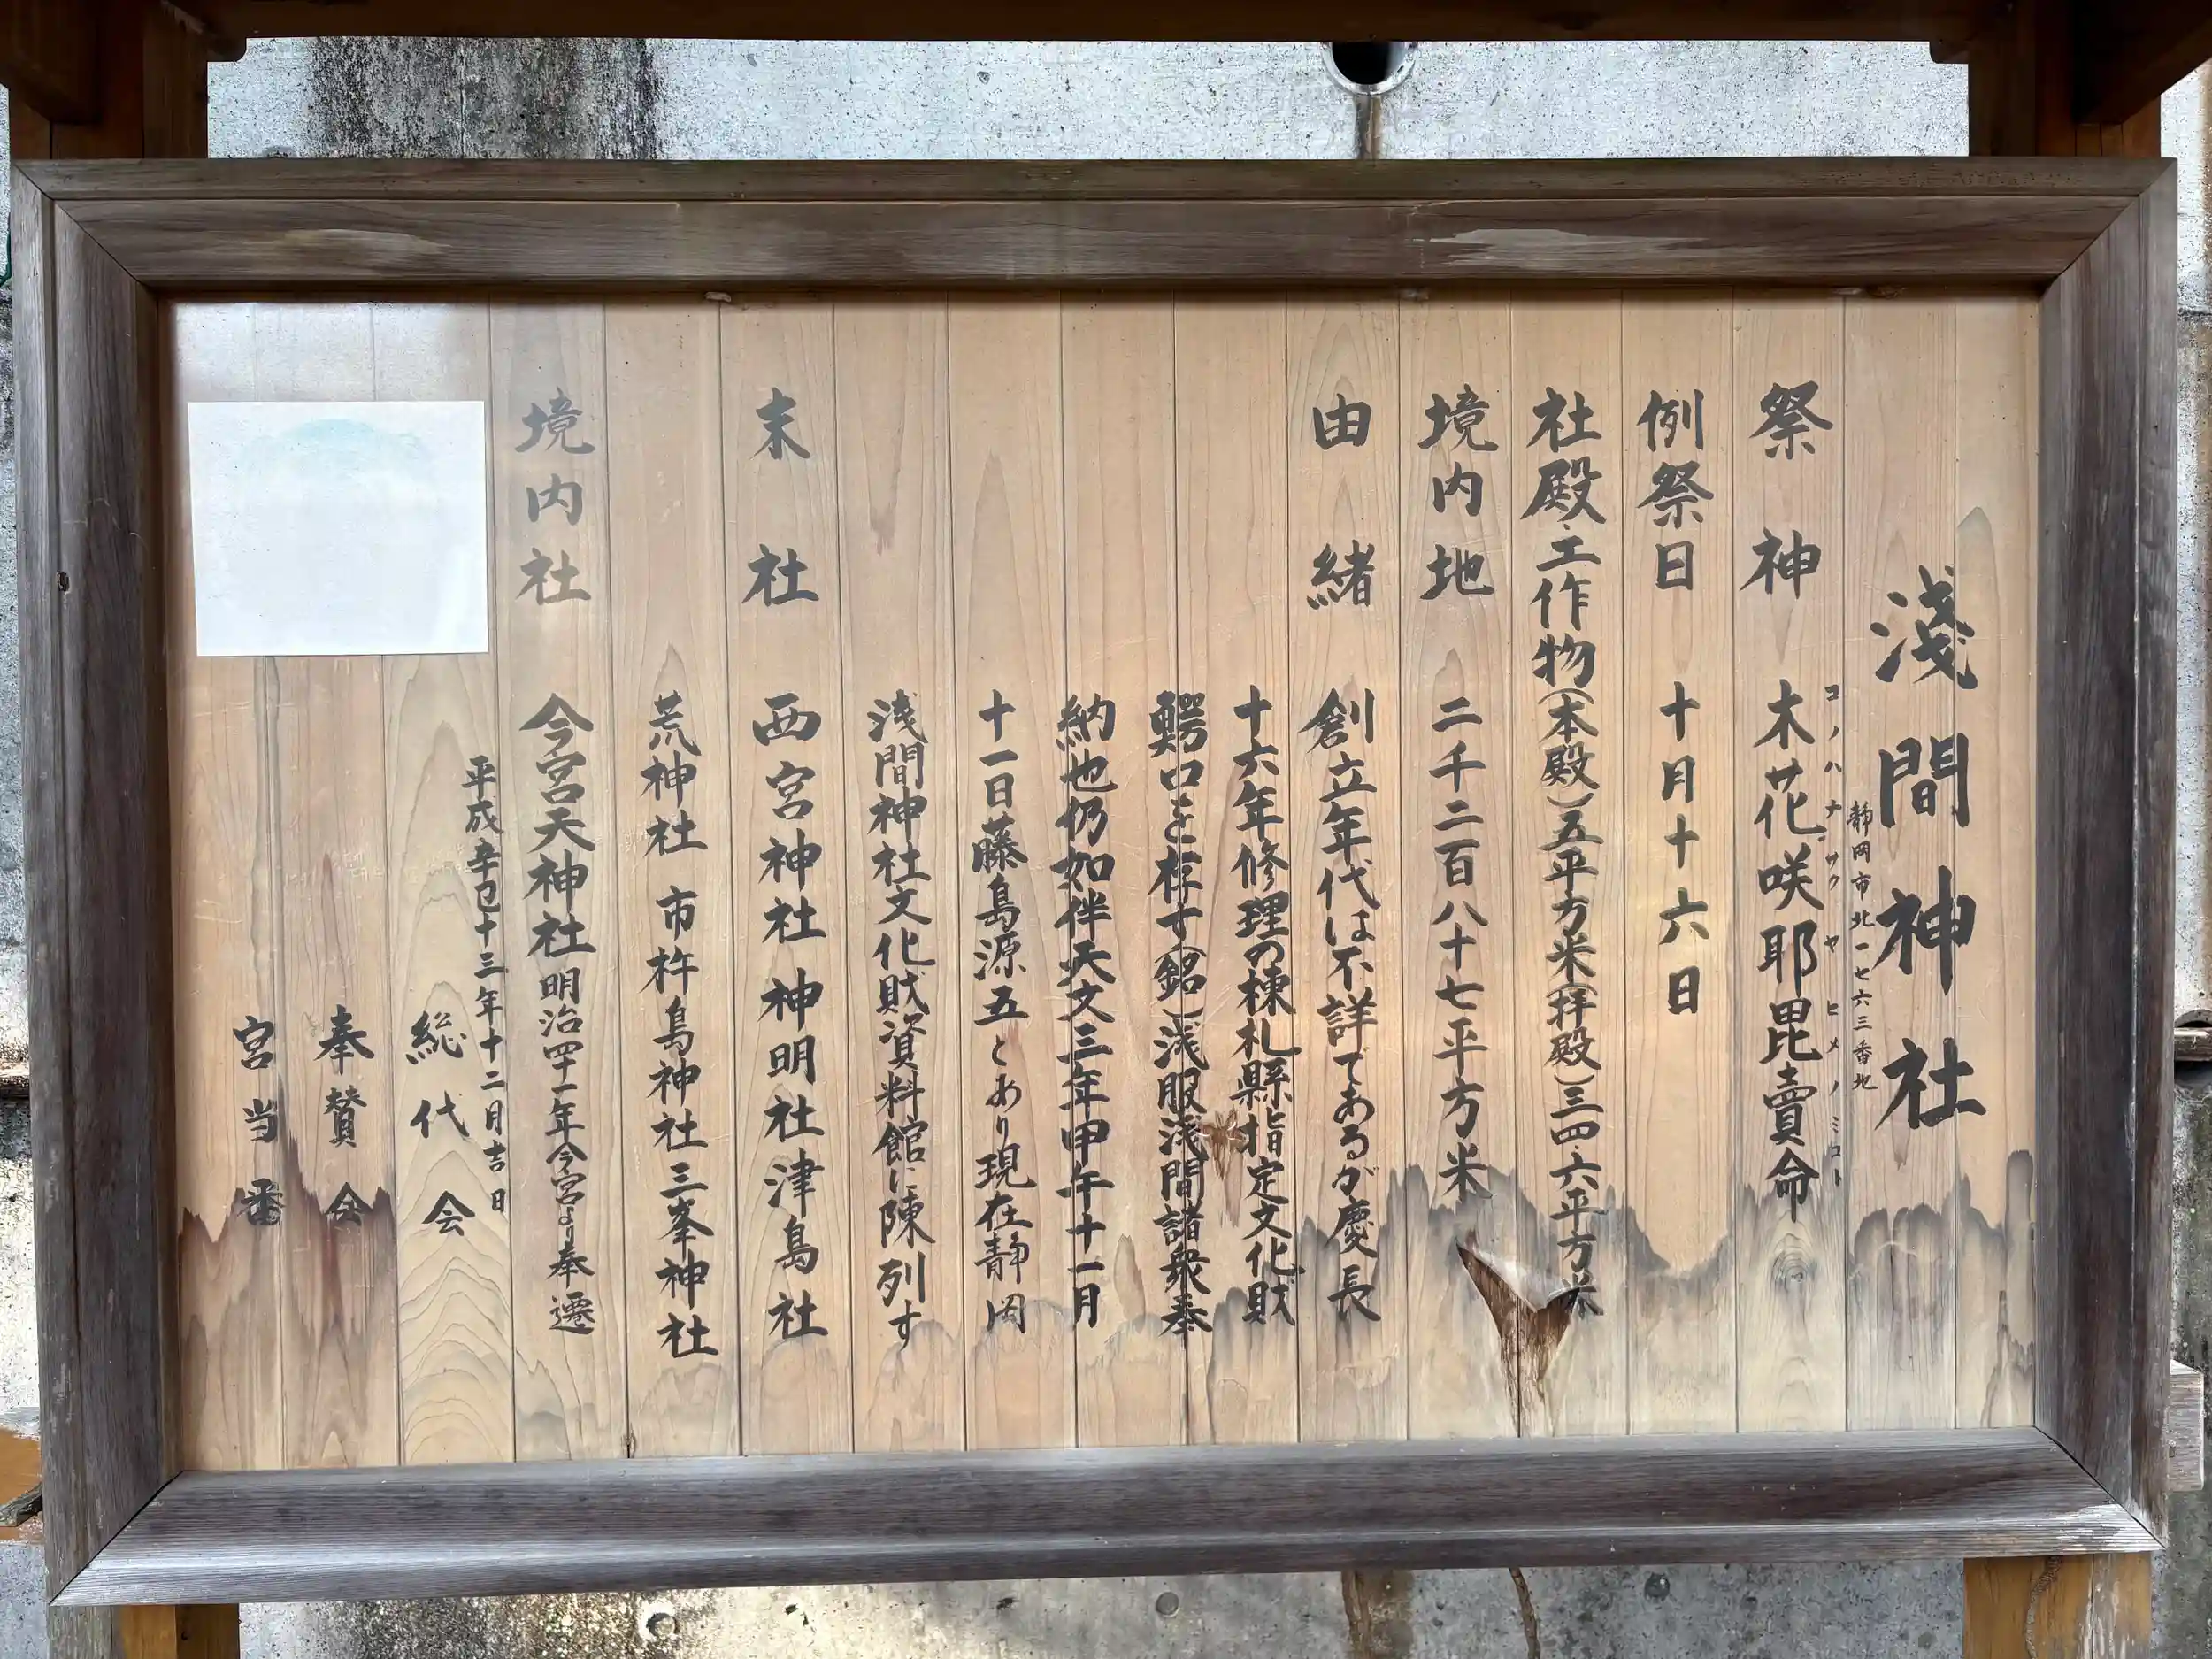 浅間神社
静岡市北一七六三番地
コノハナサクヤヒメノミコト
祭神 木花咲耶毘賣命
例祭日 十月十六日
社殿・工作物(本殿)五平方米(拝殿)三四・六平方米
境内地 二千二百八十七平方米
由緒 創立年代は不詳であるが慶長
十六年修理の棟札縣指定文化財
鰐口を存す(銘)浅服浅間諸衆奉
納也仍如件天文三年甲午十一月
十一日藤島源五とあり現在静岡
浅間神社文化財資料館に陳列す
末社 西宮神社 神明社 津島社
荒神社 市杵島神社 三峯神社
境内社 今宮天神社 明治四十一年今宮より奉遷
平成辛巳十三年十二月吉日
総代会
奉賛会
宮当番